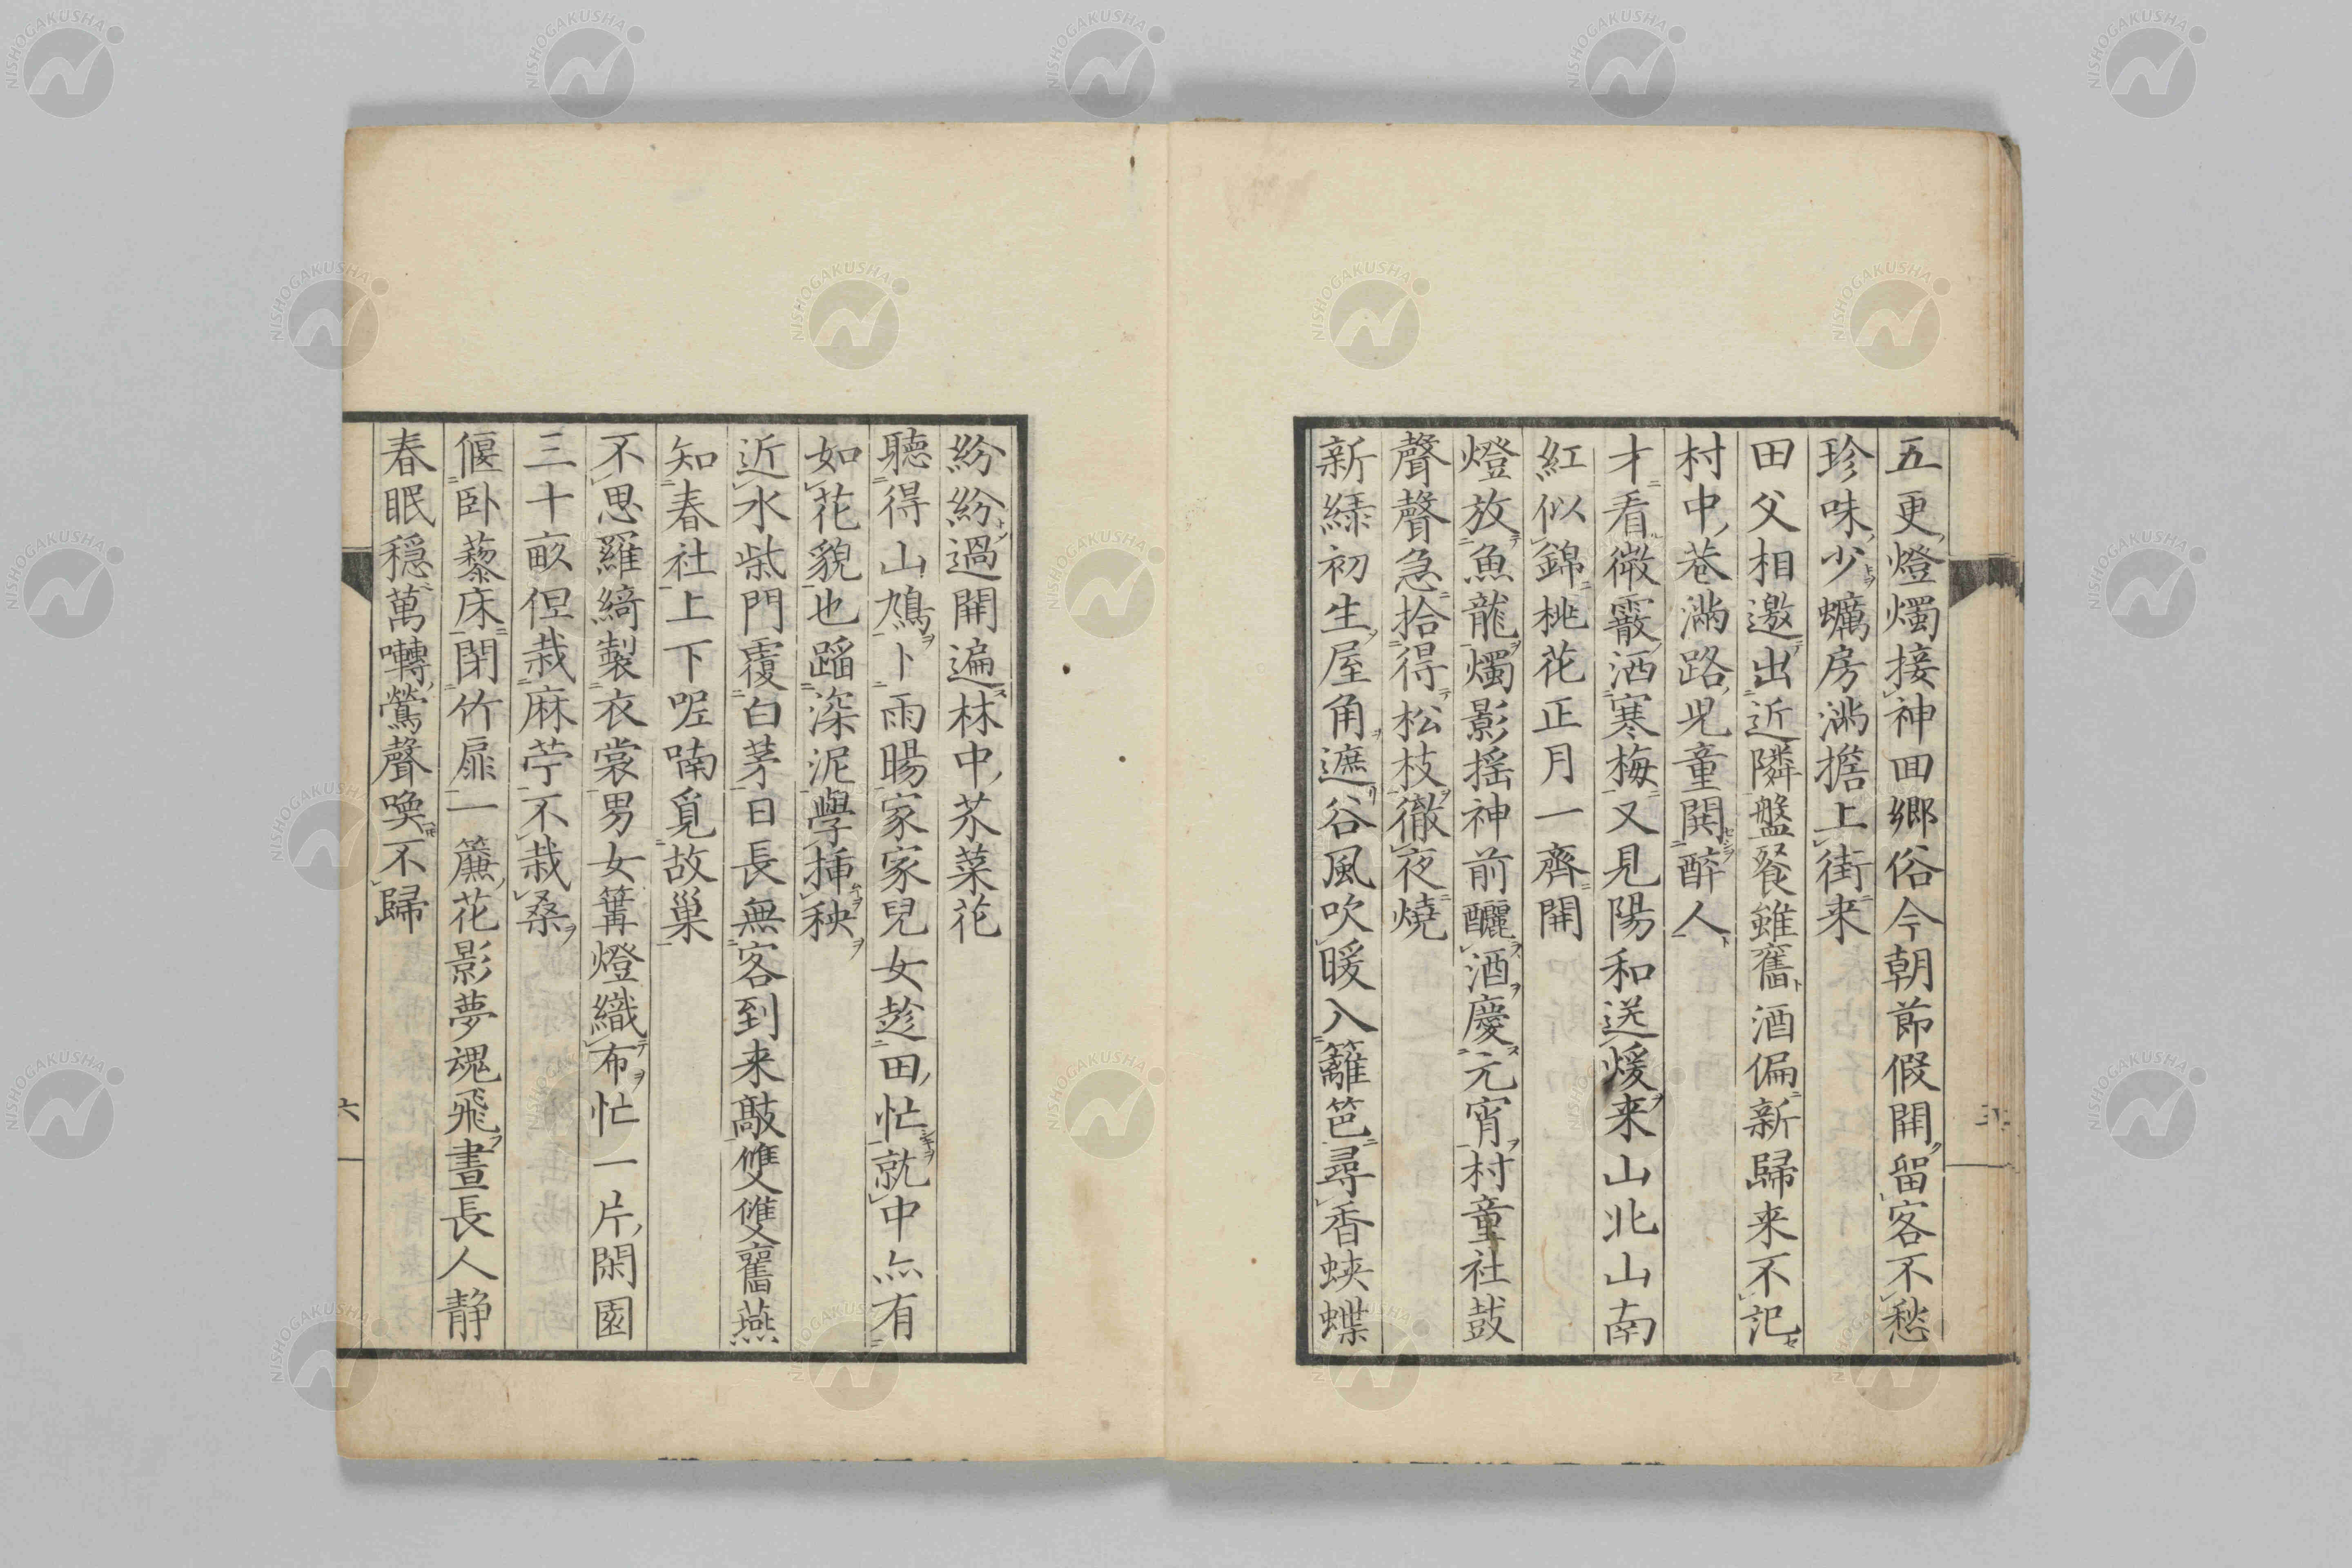 五更燈燭接神回鄉俗今朝節假開留客不愁
珍味少蠣房滿擔上街来
田父相邀出近隣盤飱雖舊酒偏新歸来不記
村中巷滿路児童閧醉人
才看微霰洒寒梅又見陽和送煖来山北山南
紅似錦桃花正月一齊開
燈放魚龍燭影摇神前釃酒慶元宵村童社鼓
聲聲急拾得松枝徹夜燒
新緑初生屋角遮谷風吹暖入籬笆尋香蛺蝶
紛紛過開遍林中芥菜花
聽得山鳩卜雨暘家家兒女趁田忙就中亦有
如花貌也蹈深泥學挿秧
近水柴門覆白茅日長無客到来敲雙雙舊燕
知春社上下呢喃覓故巢
不思羅綺製衣裳男女篝燈織布忙一片閑園
三十畝但栽麻苧不栽桑
偃卧藜床閉竹扉一簾花影夢魂飛晝長人静
春眠穏萬囀鶯聲喚不歸
六
NISHOGAKUSHA